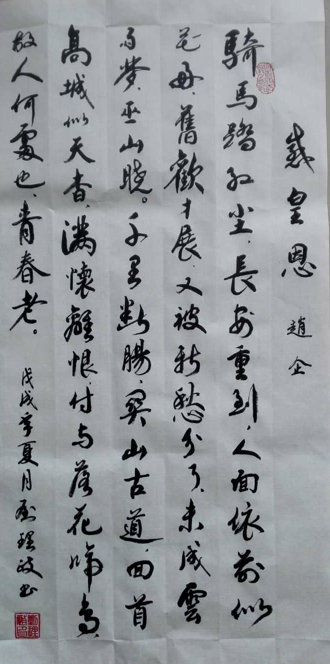 感皇恩 趙企
騎馬踏紅尘、長安重到、人面依前似
花好、舊歡才展、又被新愁分了、未成雲
雨夢、巫山曉。千里断腸、関山古道、回首
高城似天杳、滿懷離恨、付与落花啼鳥、
故人何處也、青春老。
戊戌季夏月 理政书